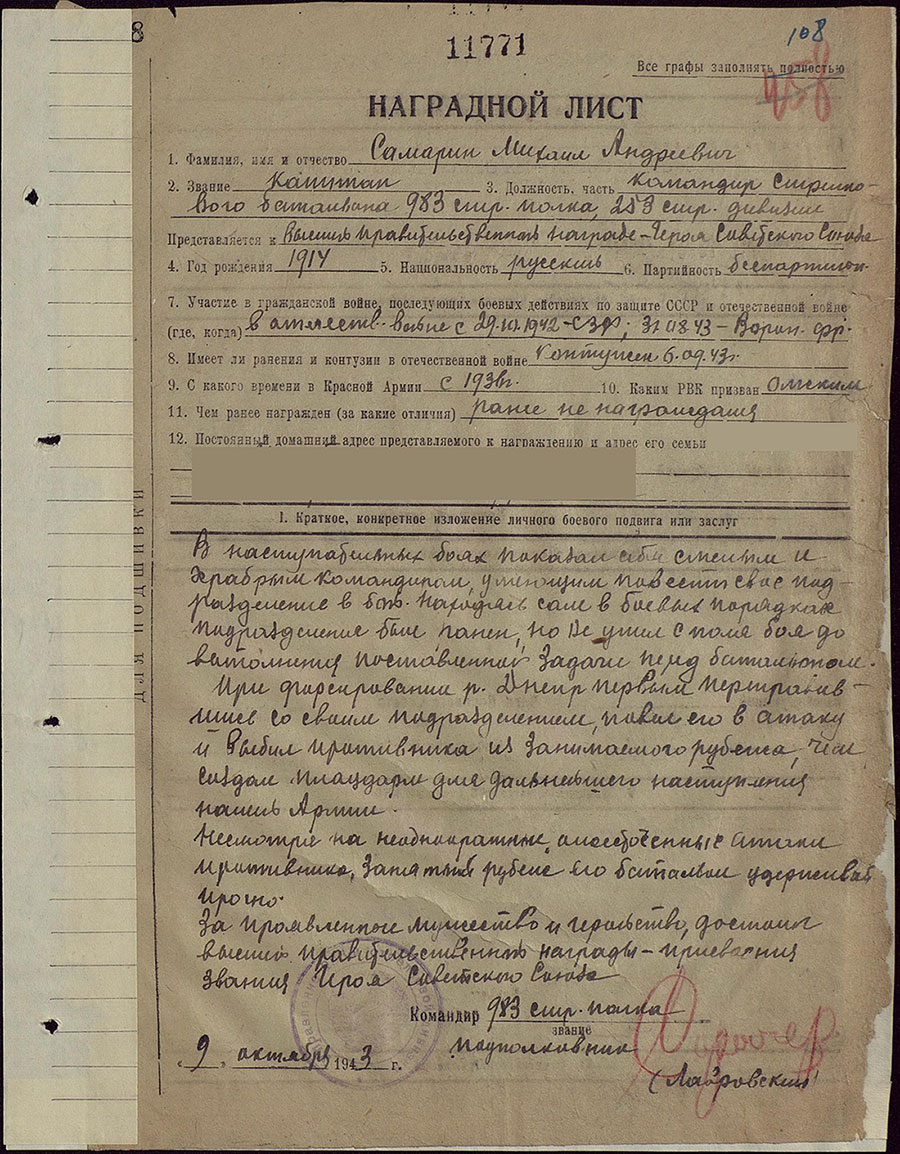 8
11771
108
Все графы заполнять полностью
НАГРАДНОЙ ЛИСТ
1. Фамилия, имя и отчество Самарин Михаил Андреевич
2. Звание Капитан 3. Должность, часть Командир стрелко-
вого батальона 983 стр. полка, 253 стр. дивизии
Представляется к Высшей правительственной награде - Героя Советского Союза
4. Год рождения 1914 5. Национальность русский 6. Партийность беспартийн.
7. Участие в гражданской войне, последующих боевых действиях по защите СССР и отечественной войне
(где, когда) в отечеств. войне с 1942 - СЗФ; 31.08.43 - Ворон. фр.
8. Имеет ли ранения и контузии в отечественной войне контужен 6.09.43г.
9. С какого времени в Красной Армии с 10. Каким РВК призван Омским
11. Чем ранее награжден (за какие отличия) ранее не награждался
12. Постоянный домашний адрес представляемого к награждению и адрес его семьи
ДЛЯ ПОДШИВКИ
I. Краткое, конкретное изложение личного боевого подвига или заслуг
В наступательных боях показал себя смелым и
храбрым командиром, умеющим повести свое под-
разделение в бой. Находясь сам в боевых порядках
подразделение был ранен, но не ушел с поля боя до
выполнения поставленной задачи перед батальоном.
При форсировании р. Днепр первым переправив-
шись со своим подразделением, повел его в атаку
и выбил противника из занимаемого рубежа, чем
создал плацдарм для дальнейшего наступления
нашей Армии.
Несмотря на неоднократные, ожесточенные атаки
противника, занятый рубеж его батальон удерживал
прочно.
За проявленное мужество и геройство, достоин
высшей правительственной награды - присвоения
звания Героя Советского Союза
Командир 983 стр. полка
звание
подполковник
(Лавровский)
„9" октября 1943 г.